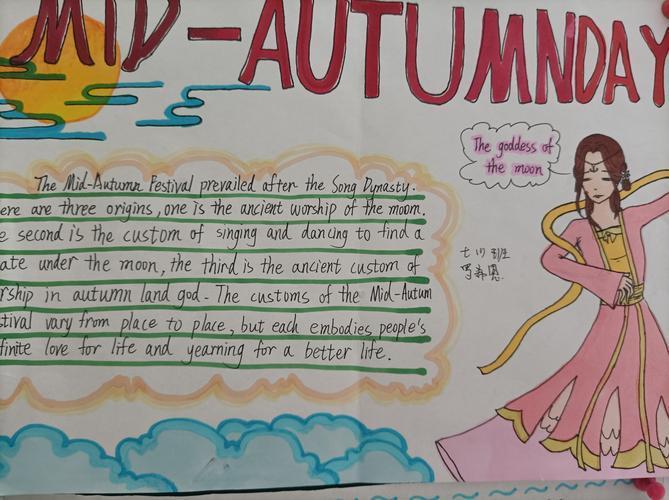 MID-AUTUMNDAY
The goddess of
the moon
The Mid-Autumn Festival prevailed after the Song Dynasty.
ere are three origins, one is the ancient worship of the moon.
e second is the custom of singing and dancing to find a
ate under the moon, the third is the ancient custom of
rship in autumn land god. The customs of the Mid-Autum
stival vary from place to place, but each embodies people's
finite love for life and yearning for a better life.